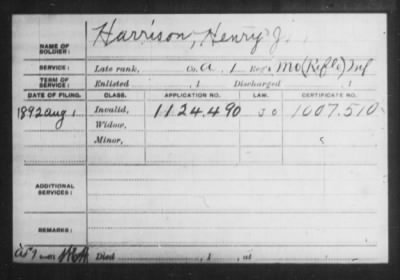 NAME OF SOLDIER: Harrison, Henry J.
SERVICE: Late rank, Co. A, 1 Reg't Mo (Rifle) Inf
TERM OF SERVICE: Enlisted , 1 Discharged , 1
DATE OF FILING. CLASS. APPLICATION NO. LAW. CERTIFICATE NO.
1892 Aug 1 Invalid, 1124.490 1007.510
Widow,
Minor,
ADDITIONAL SERVICES:
REMARKS:
Died , 1 , at